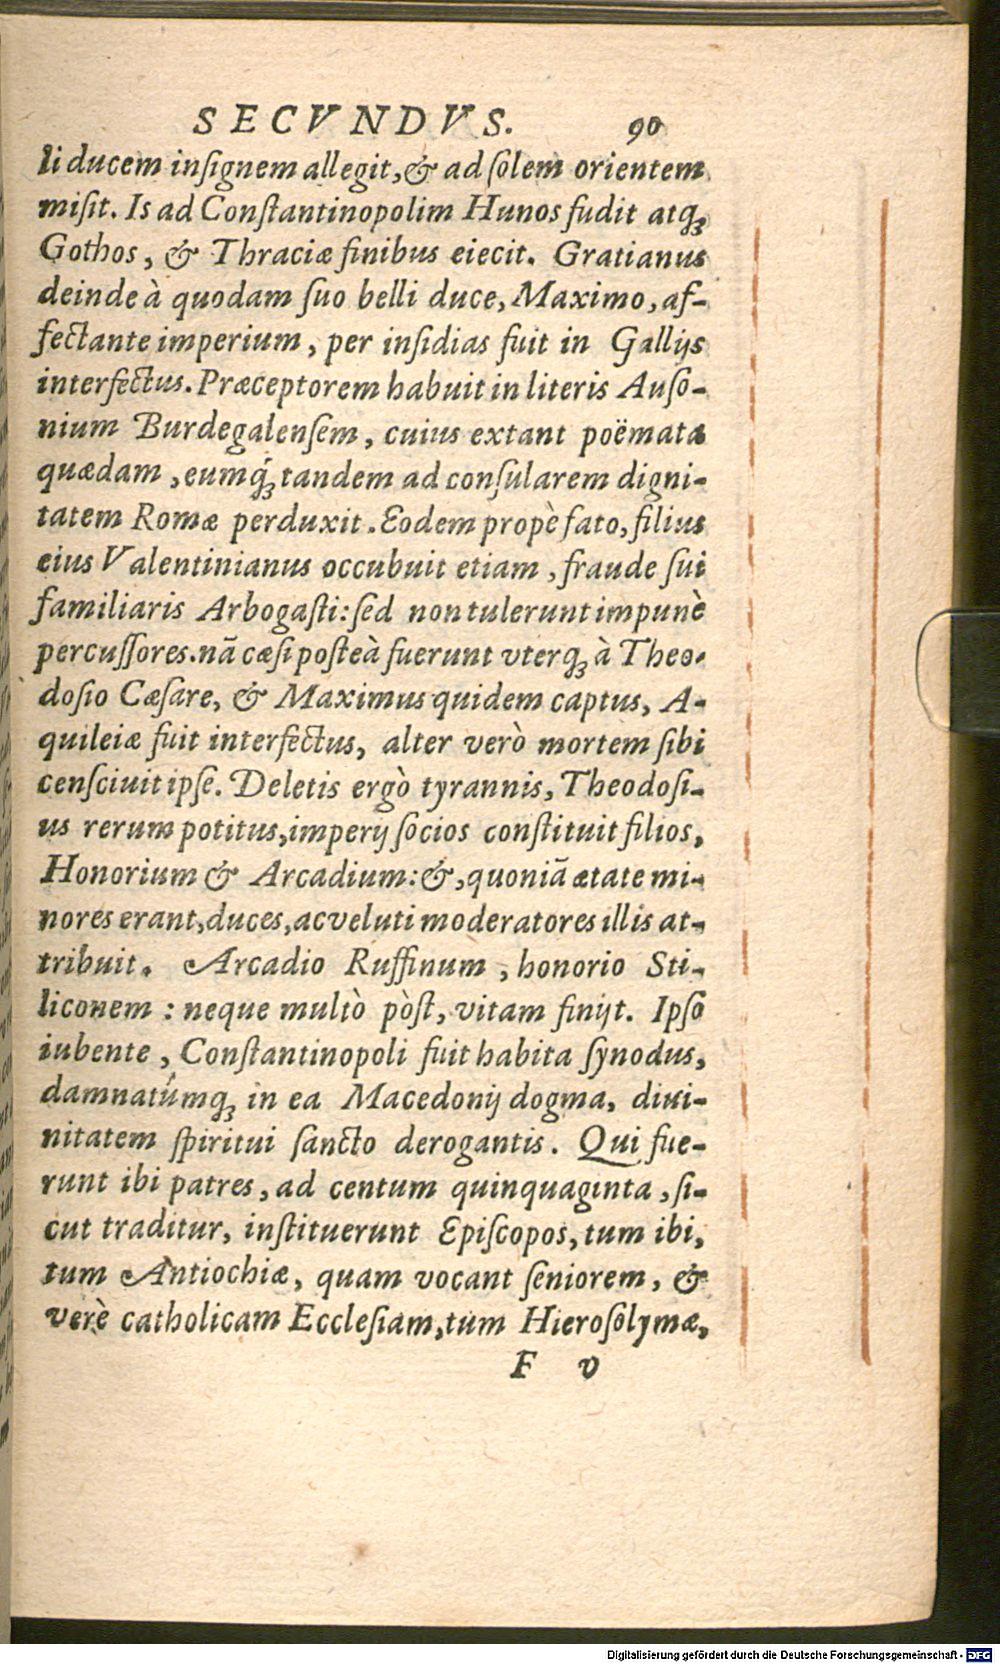 SECVNDVS. 90
li ducem inſignem allegit, & ad ſolem orientem
miſit. Is ad Conſtantinopolim Hunos fudit atq́;
Gothos, & Thraciæ finibus eiecit. Gratianus
deinde à quodam ſuo belli duce, Maximo, af-
fectante imperium, per inſidias fuit in Gallijs
interfectus. Præceptorem habuit in literis Auſo-
nium Burdegalenſem, cuius extant poëmata
quædam, eumq́; tandem ad conſularem digni-
tatem Romæ perduxit. Eodem propè fato, filius
eius Valentinianus occubuit etiam, fraude ſui
familiaris Arbogaſti: ſed non tulerunt impunè
percuſſores. nã cæſi poſteà fuerunt vterq; à Theo-
doſio Cæſare, & Maximus quidem captus, A-
quileiæ fuit interfectus, alter verò mortem ſibi
cenſciuit ipſe. Deletis ergò tyrannis, Theodoſi-
us rerum potitus, imperij ſocios conſtituit filios,
Honorium & Arcadium: &, quoniã ætate mi-
nores erant, duces, ac veluti moderatores illis at-
tribuit. Arcadio Ruffinum, honorio Sti-
liconem: neque multò pòſt, vitam finijt. Ipſo
iubente, Conſtantinopoli fuit habita ſynodus,
damnatúmq; in ea Macedonij dogma, diui-
nitatem ſpiritui ſancto derogantis. Qui fue-
runt ibi patres, ad centum quinquaginta, ſi-
cut traditur, inſtituerunt Epiſcopos, tum ibi,
tum Antiochiæ, quam vocant ſeniorem, &
verè catholicam Eccleſiam, tum Hieroſolymæ,
F v
Digitalisierung gefördert durch die Deutsche Forschungsgemeinschaft - DFG